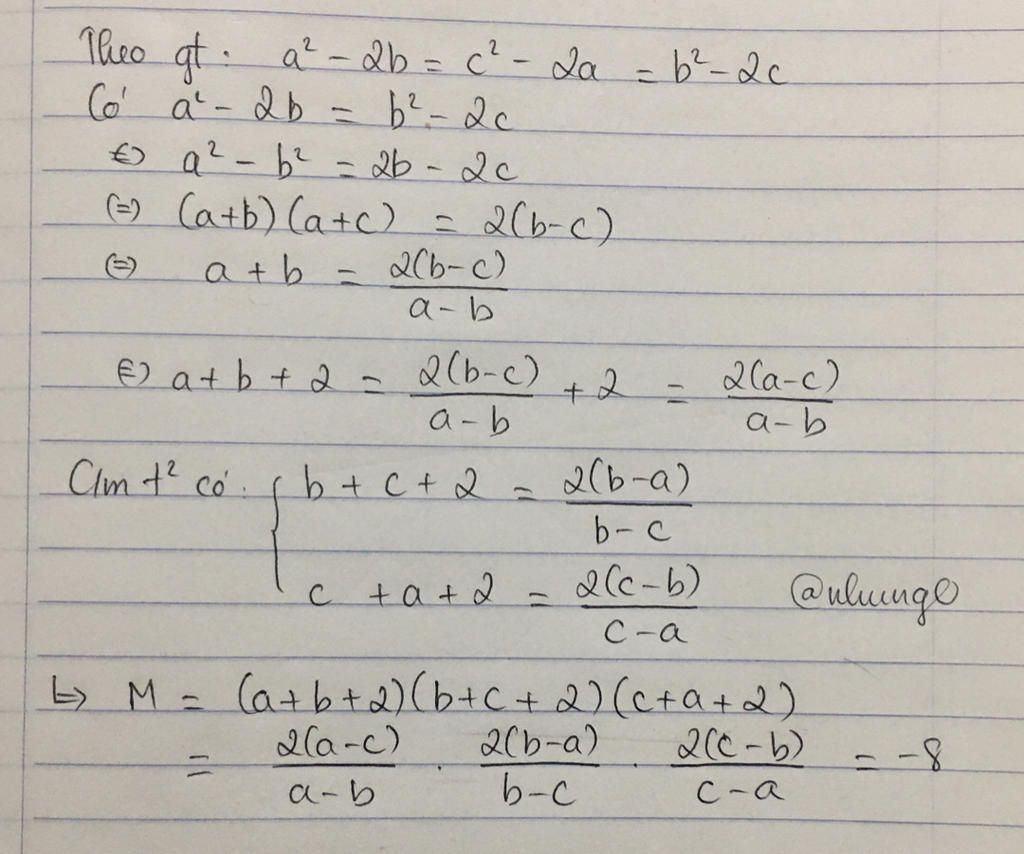 Theo gt: a² - 2b = c² - 2a = b² - 2c
Có a² - 2b = b² - 2c
⇔ a² - b² = 2b - 2c
⇔ (a+b)(a+c) = 2(b-c)
⇔ a + b = 2(b-c) / a - b
⇔ a + b + 2 = 2(b-c) / a - b + 2 = 2(a-c) / a - b
Cm t² có: { b + c + 2 = 2(b-a) / b - c
c + a + 2 = 2(c-b) / c - a @nhungo
↳ M = (a+b+2)(b+c+2)(c+a+2)
= 2(a-c) / a - b . 2(b-a) / b - c . 2(c-b) / c - a = -8